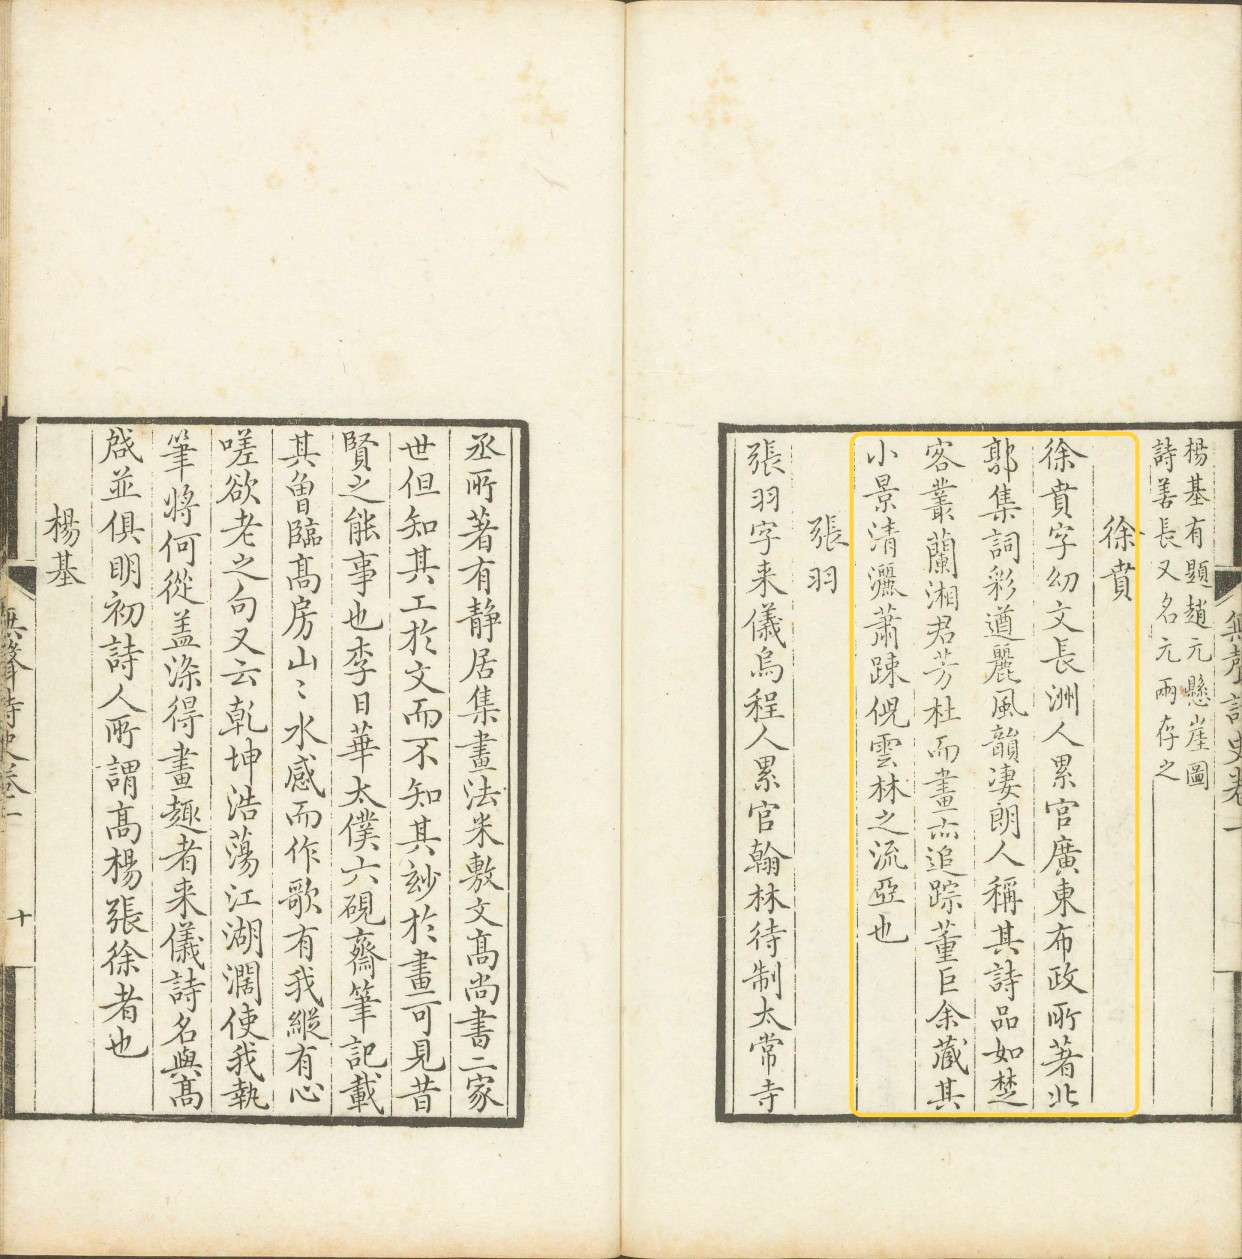 楊基有題趙元懸崖圖
詩善長又名元兩存之
徐賁
徐賁字幼文長洲人累官廣東布政所著北
郭集詞彩遒麗風韻凄朗人稱其詩品如楚
客叢蘭湘君芳杜而畫亦追踪董巨余藏其
小景清灑蕭踈倪雲林之流亞也
張羽
張羽字来儀烏程人累官翰林待制太常寺
無聲詩史卷一
十
丞所著有静居集畫法米敷文高尚書二家
世但知其工扵文而不知其玅扵畫可見昔
賢之能事也李日華太僕六硯齋筆記載
其曾臨高房山〻水感而作歌有我縱有心
嗟欲老之句又云乾坤浩蕩江湖濶使我執
筆將何從盖深得畫趣者来儀詩名與高
啟並俱明初詩人所謂高楊張徐者也
楊基
無聲詩史卷一